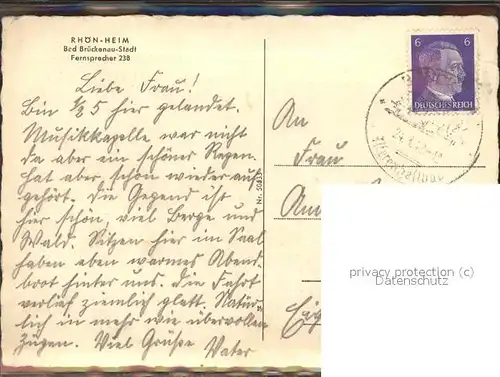 RHÖN-HEIM
Bad Brückenau-Stadt
Fernsprecher 238
Liebe Frau!
Bin ½ 5 hier gelandet.
Musikkapelle war nicht
da aber ein schöner Regen.
hat aber schon wieder auf-
gehört. Die Gegend ist
hier schön, viel Berge und
Wald. Sitzen hier im Saal
haben eben warmes Abend-
brot hinter uns. Die Fahrt
verlief ziemlich glatt. Natür-
lich in mehr wie übervollen
Zügen. Viel Grüße Vater
Nr. 50433
6 6
DEUTSCHES REICH
An
Frau
privacy protection (c)
Datenschutz